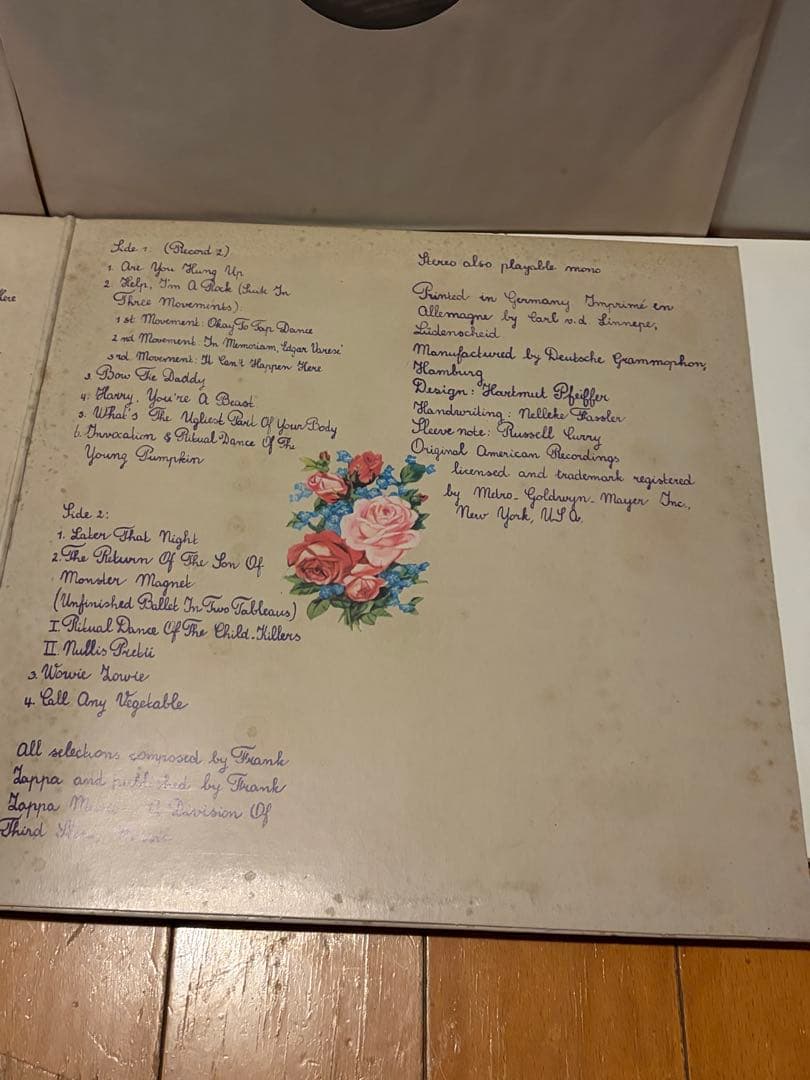 Here
Side 1. (Record 2)
1. Are You Hung Up
2. Help, I'm A Rock (Suite In
Three Movements)
1st Movement: Okay To Tap Dance
2nd Movement: In Memoriam, Edgar Varese'
3rd Movement: It Can't Happen Here
3. Bow Tie Daddy
4. Harry, You're A Beast
5. What's The Ugliest Part Of Your Body
6. Invocation & Ritual Dance Of The
Young Pumpkin
Side 2:
1. Later That Night
2. The Return Of The Son Of
Monster Magnet
(Unfinished Ballet In Two Tableaus)
I. Ritual Dance Of The Child-Killers
II. Nullis Pretii
3. Wowie Zowie
4. Call Any Vegetable
All selections composed by Frank
Zappa and published by Frank
Zappa Music A Division Of
Third
Stereo also playable mono
Printed in Germany Imprimé en
Allemagne by Carl v.d. Linnepe,
Lüdenscheid
Manufactured by Deutsche Grammophon,
Hamburg
Design: Hartmut Pfeiffer
Handwriting: Nelleke Fassler
Sleeve note: Russell Curry
Original American Recordings
licensed and trademark registered
by Metro-Goldwyn-Mayer Inc.,
New York, USA.